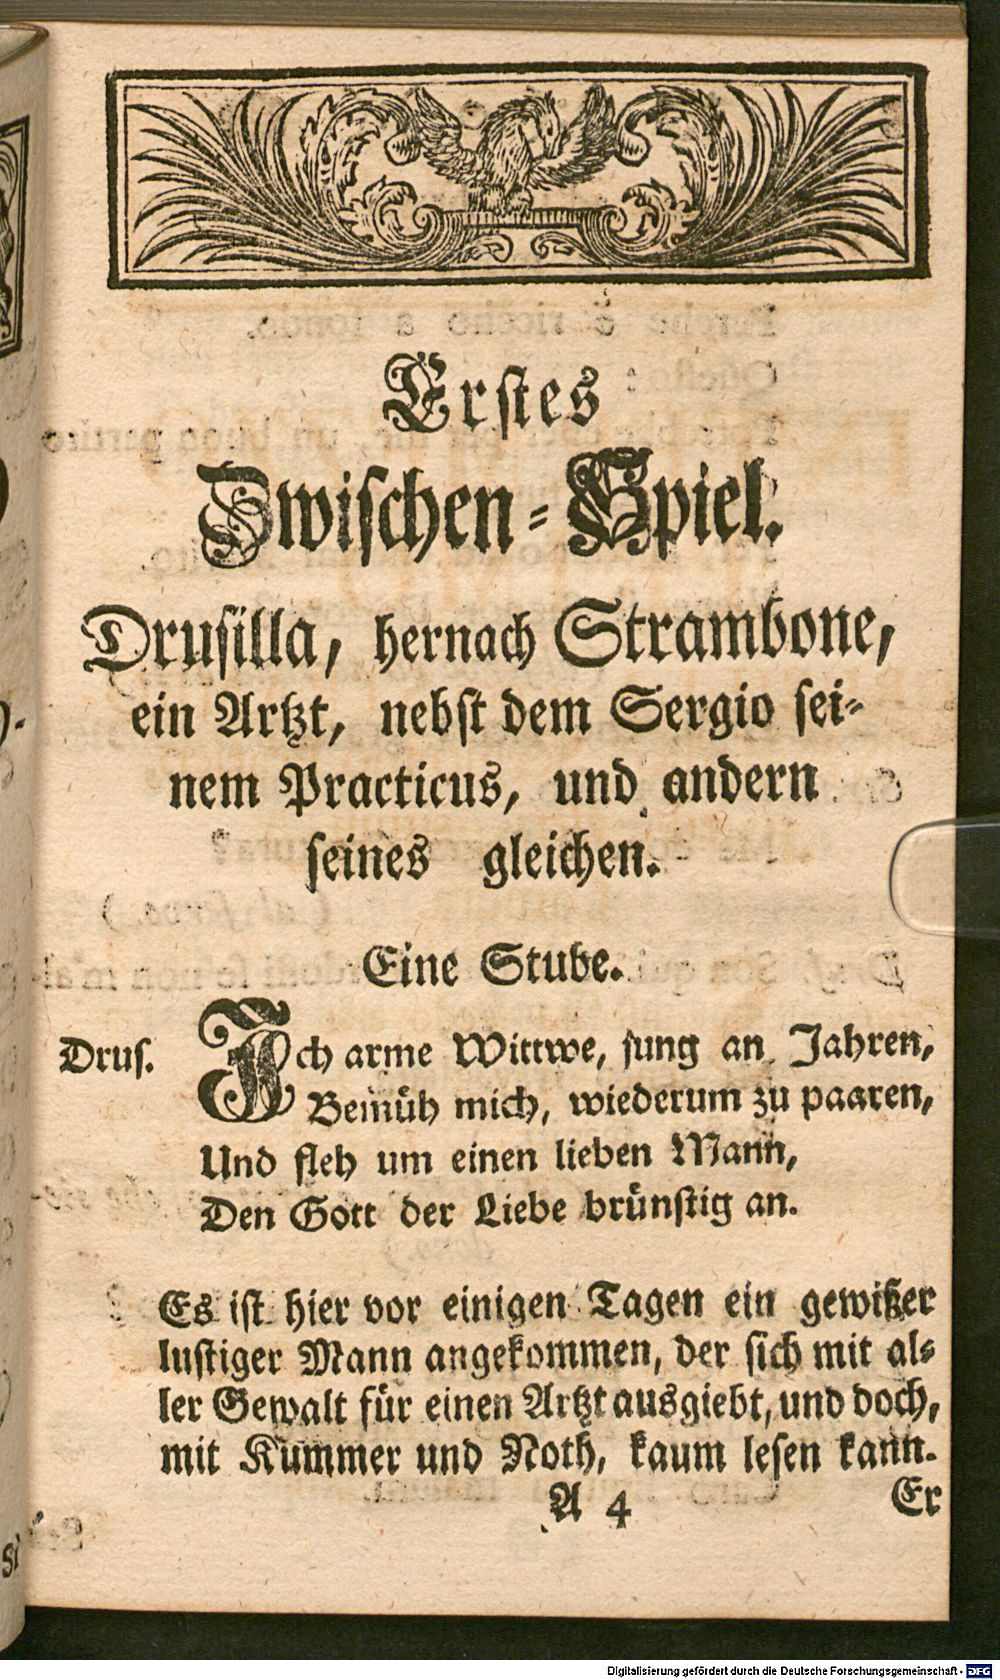 Erstes
Zwischen-Spiel.
Drusilla, hernach Strambone,
ein Artzt, nebst dem Sergio sei-
nem Practicus, und andern
seines gleichen.
Eine Stube.
Drus. Ich arme Wittwe, jung an Jahren,
Bemüh mich, wiederum zu paaren,
Und fleh um einen lieben Mann,
Den Gott der Liebe brünstig an.
Es ist hier vor einigen Tagen ein gewißer
lustiger Mann angekommen, der sich mit al-
ler Gewalt für einen Artzt ausgiebt, und doch,
mit Kummer und Noth, kaum lesen kann.
A 4 Er
Digitalisierung gefördert durch die Deutsche Forschungsgemeinschaft - DFG